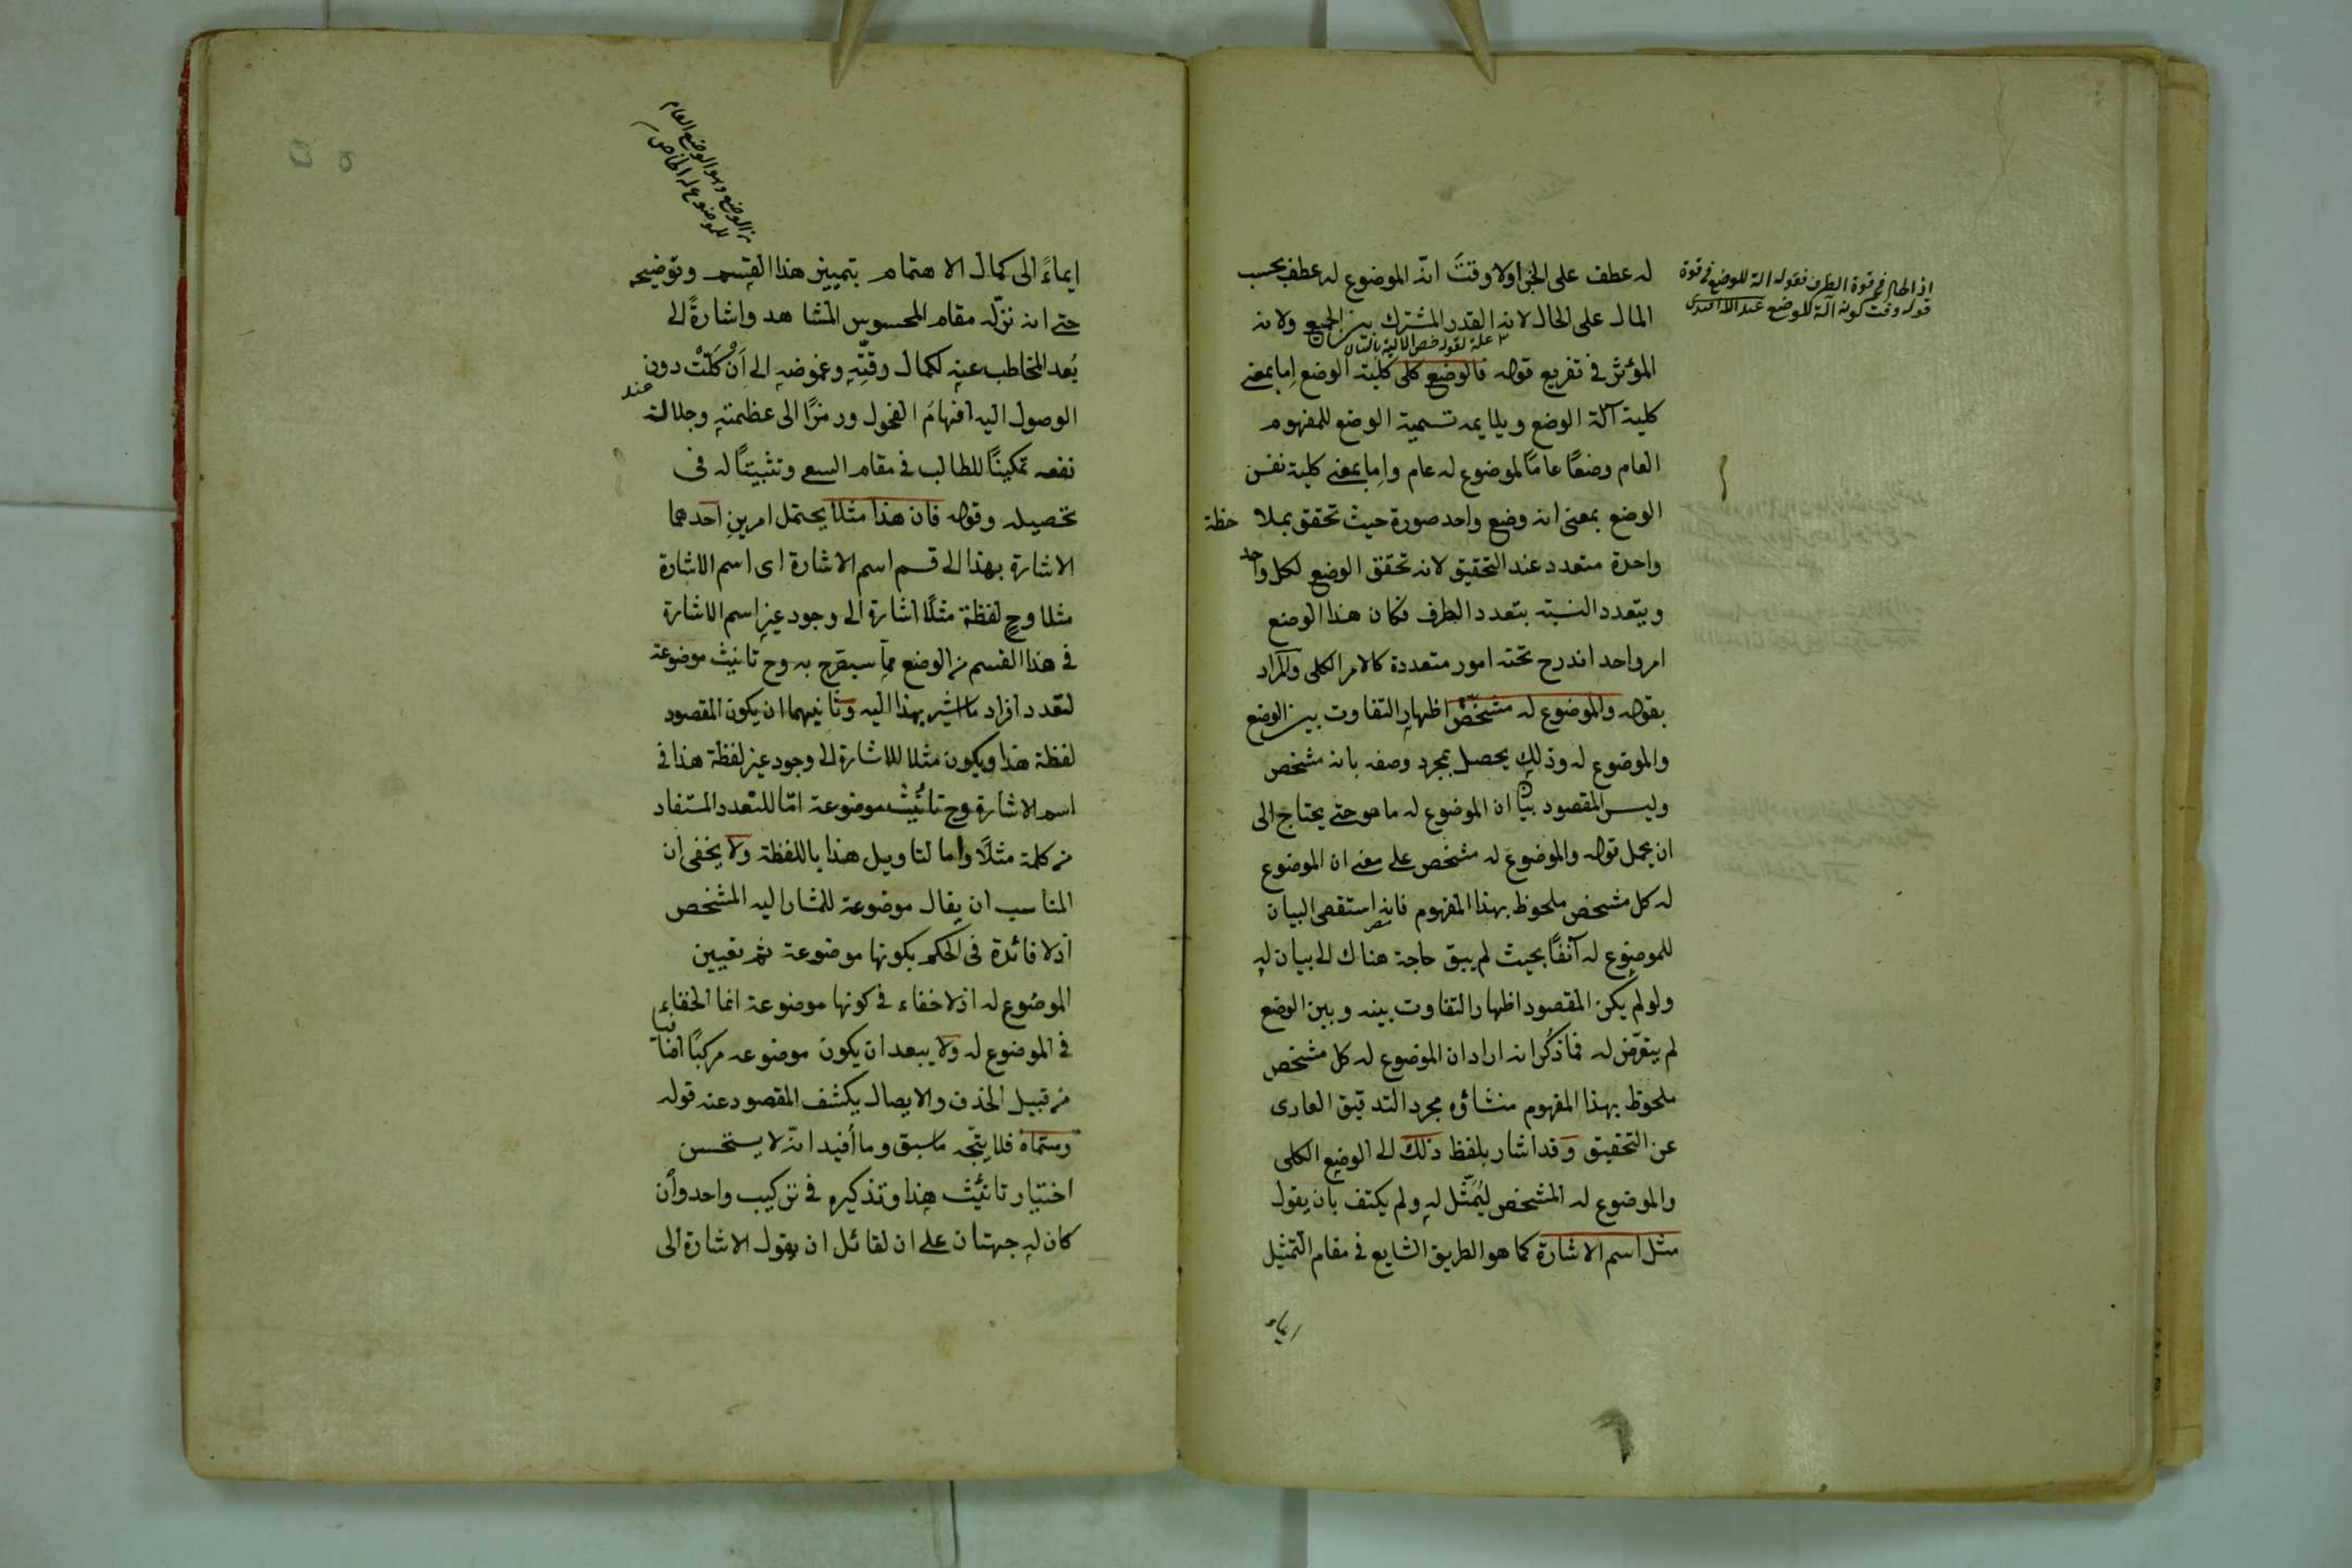 له عطف على الخبر اولا وقتَ انّ الموضوع له عطف بحسب
المال على الحال لانه القدر المشترك بين الجميع ولانه
علة لقوله خص الآلية بالبيان
المؤثر في تفريع قوله فالوضع كلى كلية الوضع إما بمعنى
كلية آلة الوضع ويلايمه تسمية الوضع للمفهوم
العام وضعًا عامًا لموضوع له عام وإما بمعنى كلية نفس
الوضع بمعنى انه وضع واحد صورة حيث تحقق بملاحظة
واحدة متعدد عند التحقيق لانه تحقق الوضع لكل واحد
ويتعدد النسبة بتعدد الطرف فكان هذا الوضع
امر واحد اندرج تحته امور متعددة كالامر الكلى والمراد
بقوله والموضوع له مشخّصٌ اظهار التفاوت بين الوضع
والموضوع له وذلك يحصل بمجرد وصفه بانه مشخص
وليس المقصود بيان ان الموضوع له ما هو حتى يحتاج الى
ان يحمل قوله والموضوع له مشخص على معنى ان الموضوع
له كل مشخص ملحوظ بهذا المفهوم فانه استقصى البيان
للموضوع له آنفًا بحيث لم يبق حاجة هناك الى بيان له
ولو لم يكن المقصود اظهار التفاوت بينه وبين الوضع
لم يتعرّض له فما ذُكر انه اراد ان الموضوع له كل مشخص
ملحوظ بهذا المفهوم منشاؤه مجرد التدقيق العارى
عن التحقيق وقد اشار بلفظ ذلك الى الوضع الكلى
والموضوع له المشخص ليُمَثّل له ولم يكتف بان يقول
مثل اسم الاشارة كما هو الطريق الشايع في مقام التمثيل
ايماء
اذ الحال في قوة الظرف فقوله آلة للوضع في قوة
قوله وقت كونه آلة للوضع عبد الله افندى
من الوضع وهو الوضع العام
للموضوع له الخاص
ايماءً الى كمال الاهتمام بتمييز هذا القسم وتوضيحه
حتى انه نزّله مقام المحسوس المشاهد واشارةً الى
بُعد المخاطب عنه لكمال دقّتِه وغموضه الى اَنْ كَلّتْ دون
الوصول اليه افهامُ الفحول ورمزًا الى عظمته وجلالة عند
نفعه تمكينًا للطالب في مقام السعى وتثبيتًا له فى
تحصيله وقوله فان هذا مثلا يحتمل امرين احدهما
الاشارة بهذا الى قسم اسم الاشارة اى اسم الاشارة
مثلا وح لفظة مثلًا اشارة الى وجود غير اسم الاشارة
في هذا القسم من الوضع مما سيصرح به وح تانيث موضوعة
لتعدد افراد ما اشير بهذا اليه وثانيهما ان يكون المقصود
لفظة هذا ويكون مثلا للاشارة الى وجود غير لفظة هذا فى
اسم الاشارة وح تانيث موضوعة امّا للتعدد المستفاد
من كلمة مثلًا واما لتاويل هذا باللفظة ولا يخفى ان
المناسب ان يقال موضوعة للمشار اليه المشخص
اذ لا فائدة فى الحكم بكونها موضوعة ثم تعيين
الموضوع له اذ لا خفاء فى كونها موضوعة انما الخفاء
فى الموضوع له ولا يبعد ان يكون موضوعه مركبًا اضافيا
من قبيل الحذف والايصال يكشف المقصود عنه قوله
ومسمّاه فلا يتّجه ما سبق وما أفيد انّه لا يستحسن
اختيار تانيث هذا وتذكيره فى تركيب واحد وأن
كان له جهتان على ان لقائل ان يقول الاشارة الى